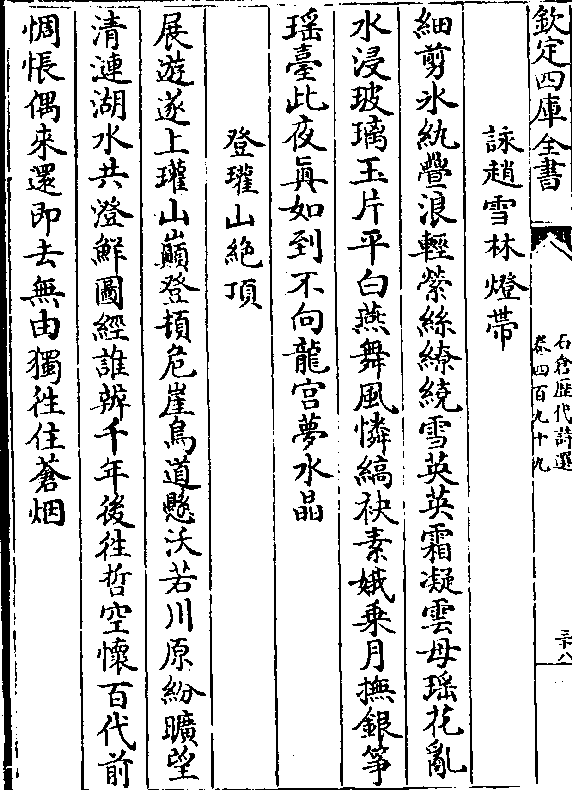 欽定四庫全書
石倉歴代詩選
卷四百九十九
三十八
詠趙雪林燈帶
細剪氷紈疊浪輕縈絲繚繞雪英英霜凝雲母瑶花亂
水浸玻璃玉片平白燕舞風憐縞袂素娥乘月撫銀箏
瑶臺此夜真如到不向龍宮夢水晶
登瓘山絶頂
展遊遂上瓘山巔登頓危崖鳥道懸沃若川原紛曠望
清漣湖水共澄鮮圖經誰辨千年後徃哲空懷百代前
惆悵偶來還即去無由獨徃住蒼烟